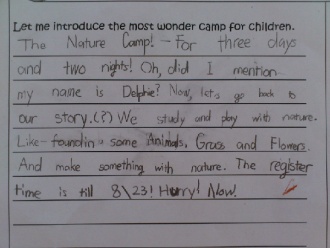 Let me introduce the most wonder camp for children.
The Nature Camp! - For three days
and two nights! Oh, did I mention
my name is Delphie? Now, let's go back to
our story. (?) We study and play with nature.
Like- some Animals, Grass and Flowers.
And make something with nature. The register
time is till 8\23! Hurry! Now.